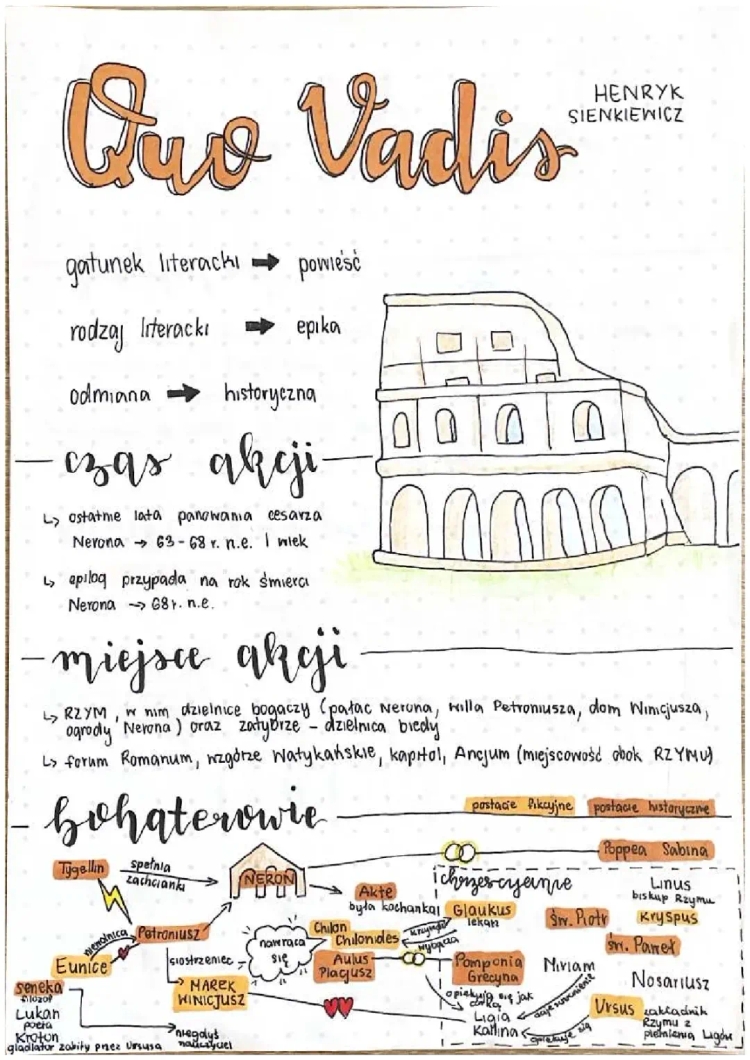 Quo Vadis
HENRYK
SIENKIEWICZ
gatunek literacki → powieść
rodzaj literacki → epika
odmiana → historyczna
czas akcji
↳ ostatnie lata panowania cesarza
Nerona → 63-68 r. n.e. I wiek
↳ epilog przypada na rok śmierci
Nerona → 68 r. n.e.
miejsce akcji
↳ RZYM, w nim dzielnice bogaczy (pałac Nerona, willa Petroniusza, dom Winicjusza,
ogrody Nerona) oraz zatybrze - dzielnica biedy
↳ forum Romanum, wzgórze Watykańskie, kapitol, Ancjum (miejscowość obok RZYMU)
bohaterowie
postacie fikcyjne
postacie historyczne
Tygellin
spełnia
zachcianki
NERON
Poppea Sabina
Akte
była kochanka
chrześcijanie
Linus
biskup Rzymu
Glaukus
lekarz
św. Piotr
Kryspus
św. Paweł
Petroniusz
niewolnica
Eunice
siostrzeniec
MAREK
WINICJUSZ
nawraca
się
Chilon
Chilonides
krzywdzi
wybacza
Aulus
Placjusz
Pomponia
Grecyna
Miriam
Nosariusz
opiekują się jak
córką
Ligia
Kallina
daje schronienie
Ursus
zakładnik
Rzymu z
plemienia Ligów
opiekuje się
Seneka
filozof
Lukan
poeta
Kroton
gladiator zabity przez Ursusa
niegdyś
nauczyciel